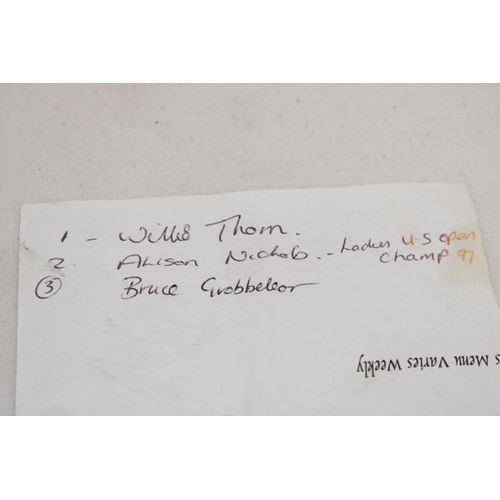 1 - Willie Thorn.
2 Alison Nichols. - Ladies U-S open
champ 97
3 Bruce Grobbeleor
s Menu Varies Weekly